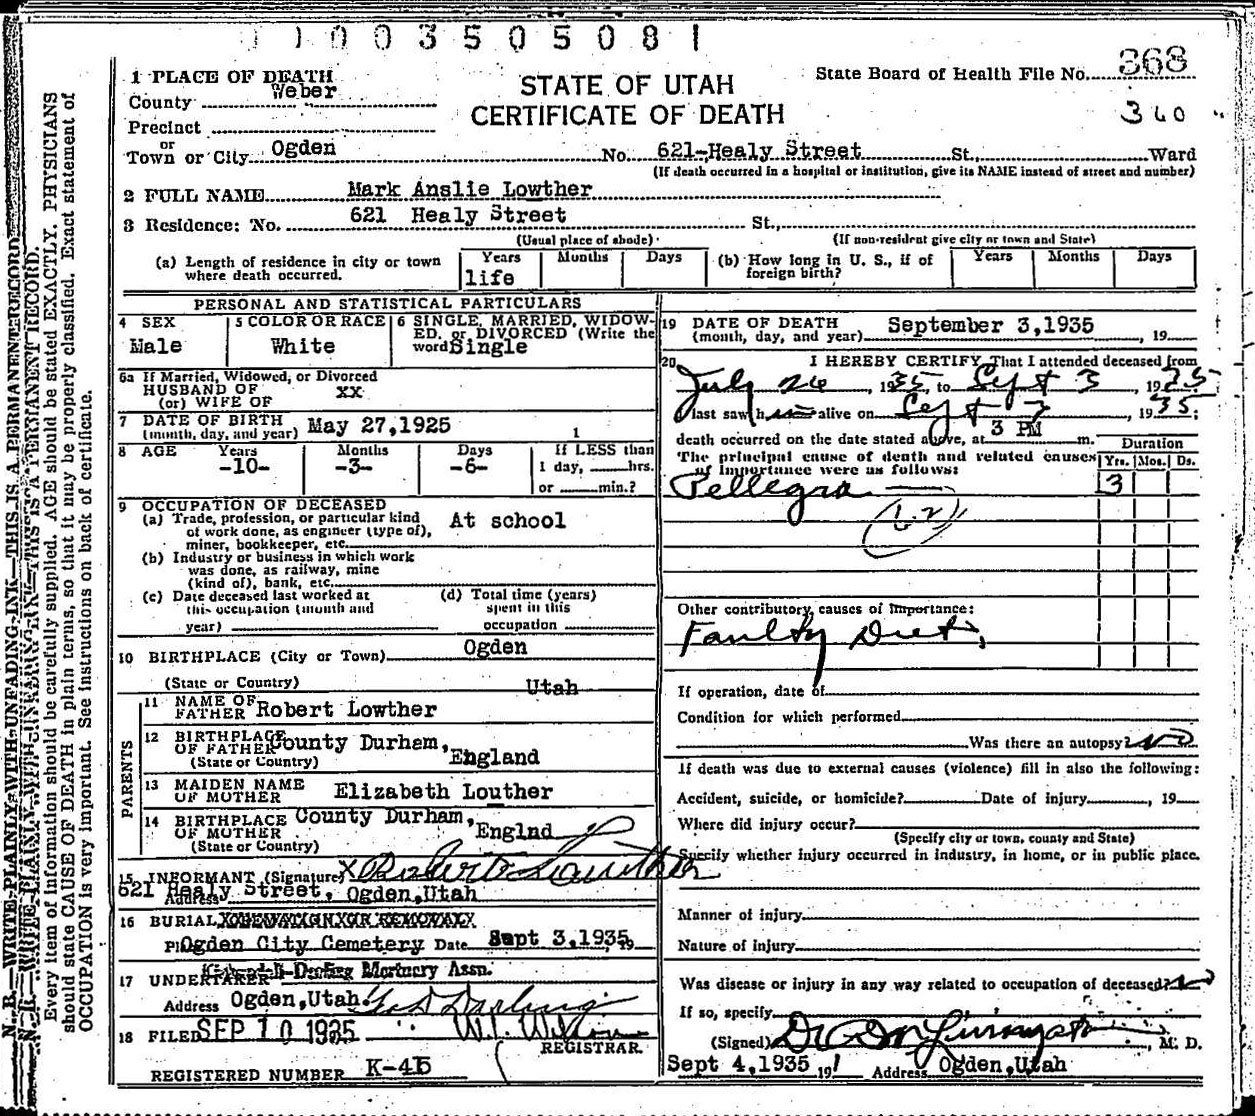 1 1 0 0 3 5 0 5 0 8 1
1 PLACE OF DEATH
County Weber
Precinct
or
Town or City Ogden No. 621-Healy Street St., Ward
(If death occurred in a hospital or institution, give its NAME instead of street and number)
STATE OF UTAH
CERTIFICATE OF DEATH
State Board of Health File No. 368
360
2 FULL NAME Mark Anslie Lowther
3 Residence: No. 621 Healy Street St.,
(Usual place of abode) (If non-resident give city or town and State)
(a) Length of residence in city or town where death occurred. Years Months Days
life
(b) How long in U. S., if of foreign birth? Years Months Days
PERSONAL AND STATISTICAL PARTICULARS
4 SEX
Male
5 COLOR OR RACE
White
6 SINGLE, MARRIED, WIDOW-
ED, or DIVORCED (Write the
word) Single
6a If Married, Widowed, or Divorced
HUSBAND OF xx
(or) WIFE OF
7 DATE OF BIRTH
(month, day, and year) May 27,1925
1
8 AGE Years Months Days If LESS than
-10- -3- -6- 1 day, hrs.
or min.?
9 OCCUPATION OF DECEASED
(a) Trade, profession, or particular kind
of work done, as engineer (type of),
miner, bookkeeper, etc. At school
(b) Industry or business in which work
was done, as railway, mine
(kind of), bank, etc.
(c) Date deceased last worked at
this occupation (month and
year)
(d) Total time (years)
spent in this
occupation
10 BIRTHPLACE (City or Town) Ogden
(State or Country) Utah
PARENTS
11 NAME OF
FATHER Robert Lowther
12 BIRTHPLACE
OF FATHER County Durham,
(State or Country) England
13 MAIDEN NAME
OF MOTHER Elizabeth Louther
14 BIRTHPLACE
OF MOTHER County Durham,
(State or Country) Englnd
15 INFORMANT (Signature) X Robert Lowther
Address 621 Healy Street, Ogden,Utah
16 BURIAL, CREMATION OR REMOVAL
Pl Ogden City Cemetery Date Sept 3,1935, 19
17 UNDERTAKER Darling Mortuary Assn.
Address Ogden,Utah. Darling
18 FILED SEP 10 1935
REGISTRAR.
REGISTERED NUMBER K-45
19 DATE OF DEATH
(month, day, and year) September 3,1935 , 19
20 I HEREBY CERTIFY, That I attended deceased from
July 26, 1935, to Sept 3 1935
I last saw him alive on Sept 3, 1935;
death occurred on the date stated above, at 3 PM m.
The principal cause of death and related causes
of importance were as follows:
Duration
Yrs. Mos. Ds.
Pellegra 3
(62)
Other contributory causes of importance:
Faulty Diet,
If operation, date of
Condition for which performed
Was there an autopsy? No
If death was due to external causes (violence) fill in also the following:
Accident, suicide, or homicide? Date of injury , 19
Where did injury occur?
(Specify city or town, county and State)
Specify whether injury occurred in industry, in home, or in public place.
Manner of injury
Nature of injury
Was disease or injury in any way related to occupation of deceased? No
If so, specify
(Signed) , M. D.
Sept 4,1935 19 Address Ogden,Utah
N. B.—WRITE PLAINLY, WITH UNFADING INK—THIS IS A PERMANENT RECORD.
Every item of information should be carefully supplied. AGE should be stated EXACTLY. PHYSICIANS
should state CAUSE OF DEATH in plain terms, so that it may be properly classified. Exact statement of
OCCUPATION is very important. See instructions on back of certificate.